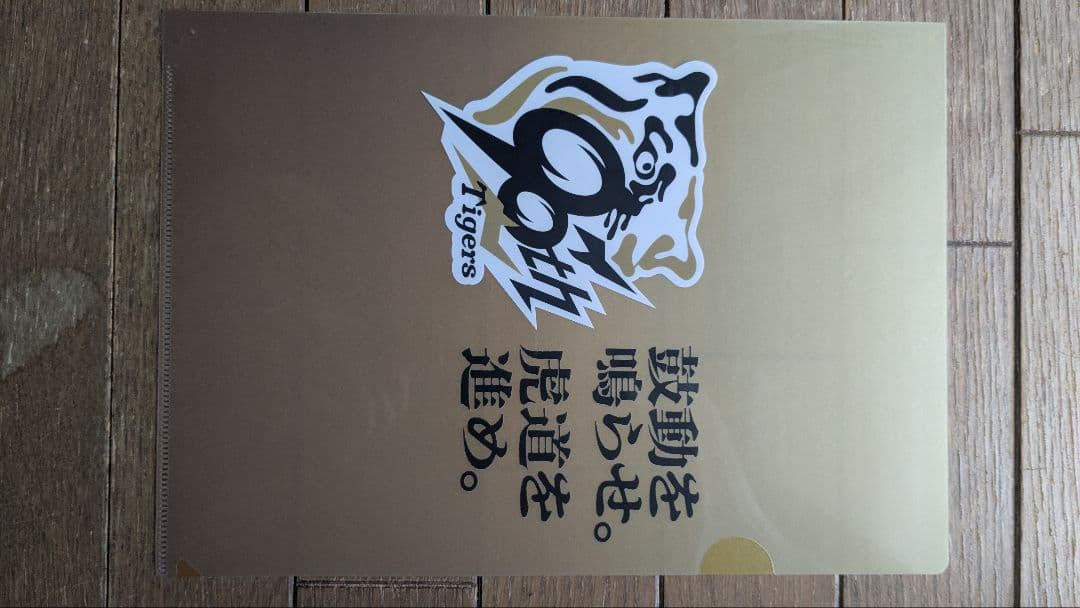 90th
Tigers
鼓動を
鳴らせ。
虎道を
進め。